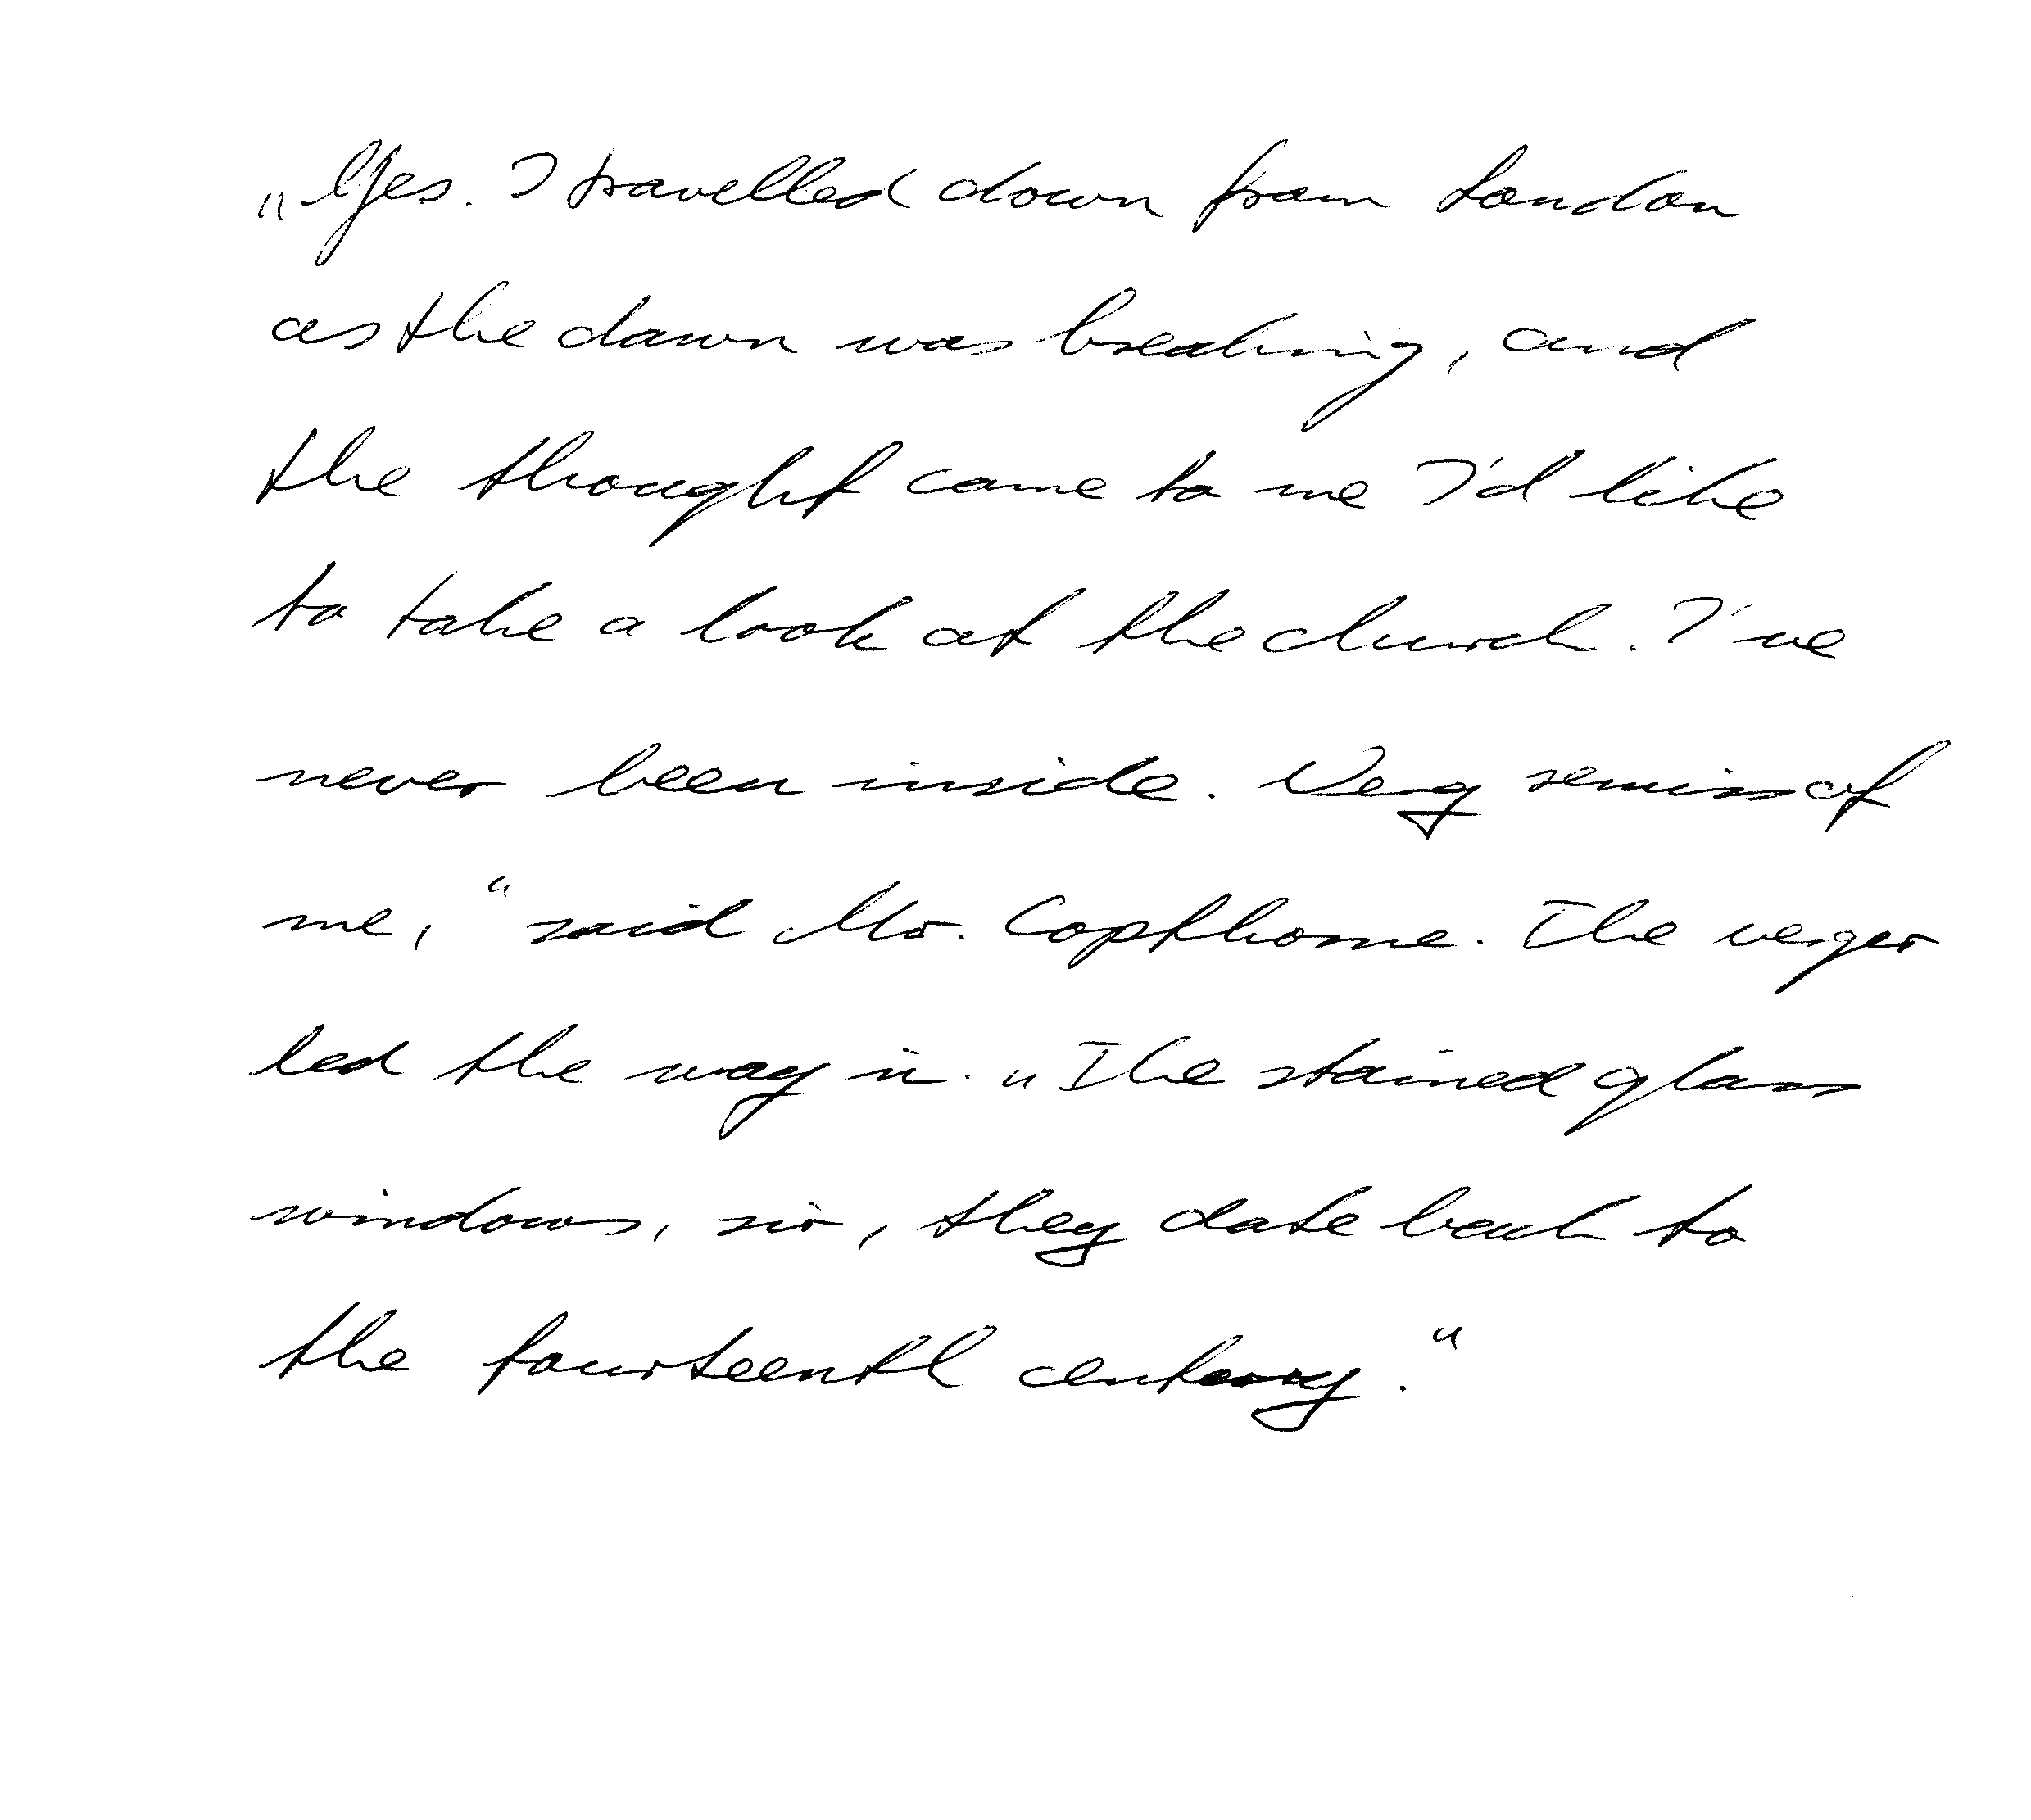 „Yes. I travelled down from London
as the dawn was breaking, and
the thought came to me I'd like
to take a look at the church. I've
never been inside. Very remiss of
me," said Mr. Copthorne. The verger
led the way in. „The stained glass
windows, sir, they date back to
the fourteenth century."